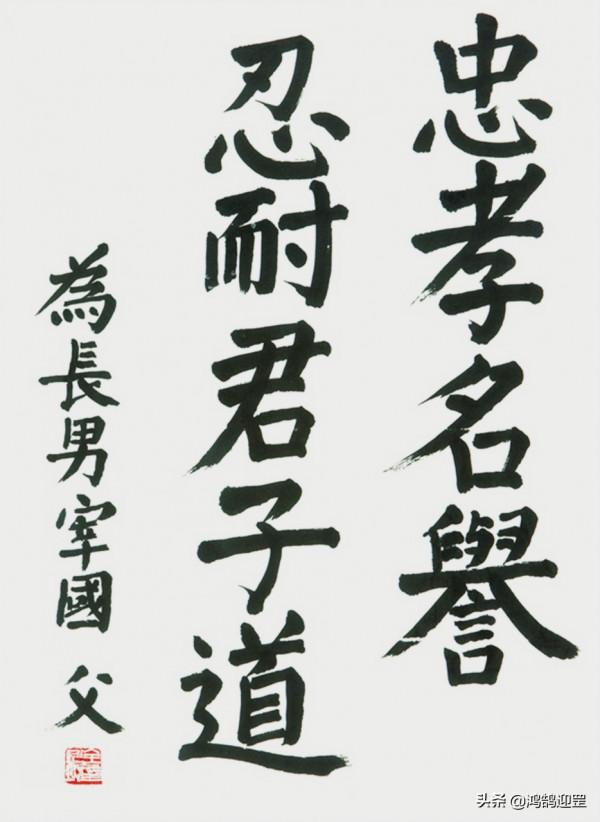 忠孝名譽
忍耐君子道
為長男宰國 父
头条 @鸿鹄迎罡